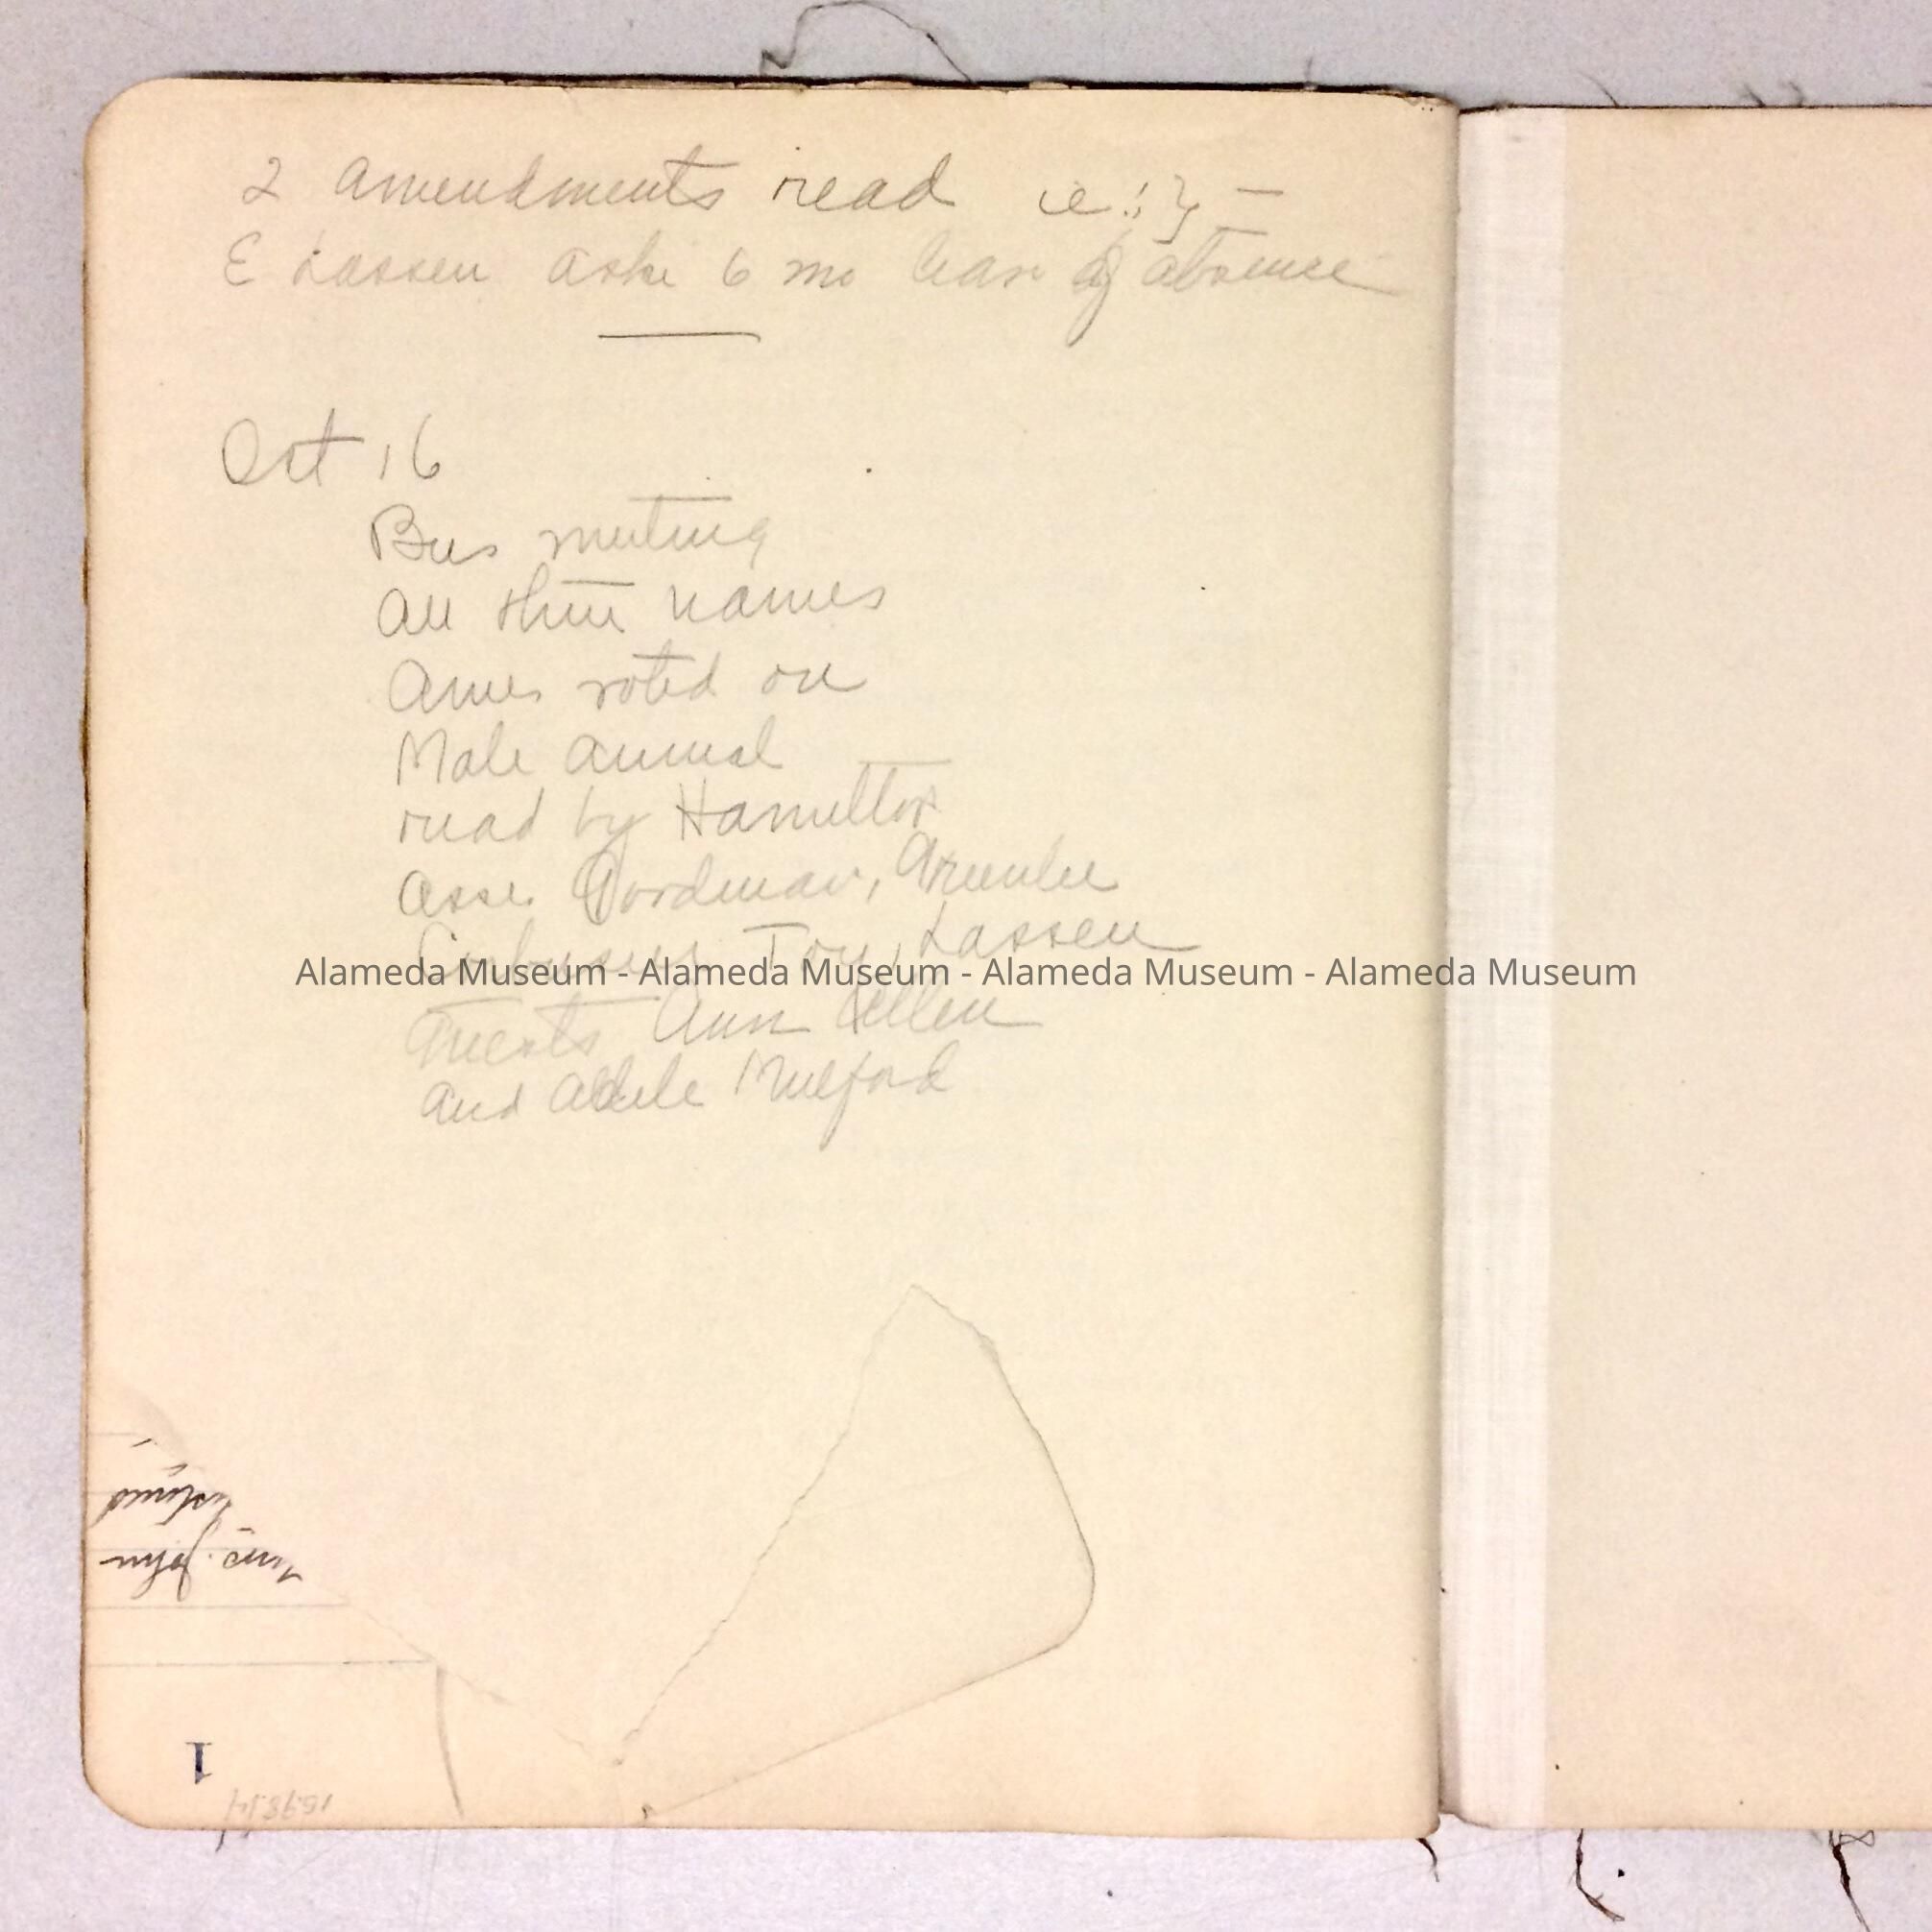 2 amendments read ie:
E Lassen asks 6 mo leave of absence
Oct 16
Bus meeting
All three names
Ames voted on
Male Animal
read by Hamilton
Asse. Goodman, Greenlee
Toy, Lassen
Alameda Museum - Alameda Museum - Alameda Museum - Alameda Museum
Guests Ann Allen
and Adele Mulford
Mrs. John
1